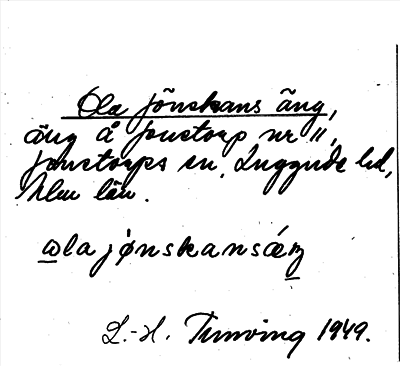 Ola Jönskans äng,
äng å Jonstorp nr 11,
Jonstorps sn, Luggude hd,
Mlm län.
wla jønskansæŋ
L.-H. Tunving 1949.